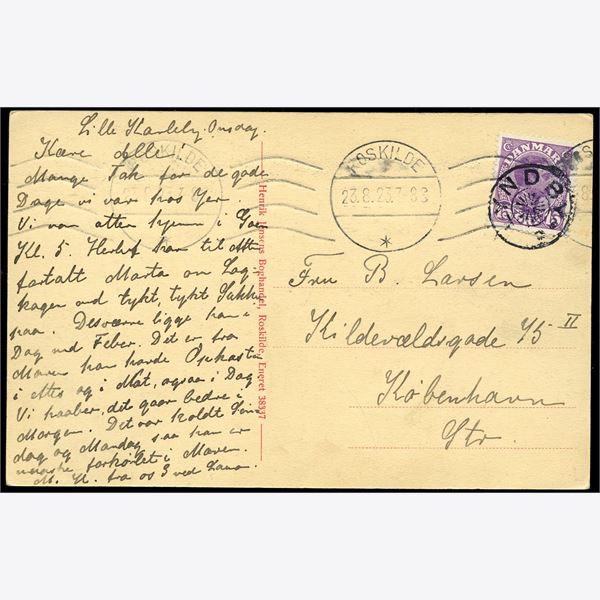 Lille Karleby. Onsdag.
Kære alle
Mange Tak for de gode
Dage vi var hos Jer.
Vi var atter hjemme i Gaar
Kl. 5. Herluf har til
fortalt Marta om Lag-
kagen med tykt, tykt Sukker
paa. Desværre ligger han i
Dag med Feber. Det er fra
Maven han havde Opkast
i og i Nat, ogsaa i Dag
Vi haaber, det gaar bedre i
Morgen. Det var koldt Søn-
dag og Mandag saa han er
maaske forkølet i Maven.
M. H. fra os 3 ved
Henrik Jensens Boghandel, Roskilde. Eneret 38337
ROSKILDE
ROSKILDE
23.8.23.7-8 S
DANMARK
15
INDR
Fru B. Larsen
Kildevældsgade 45 II
København
Str.